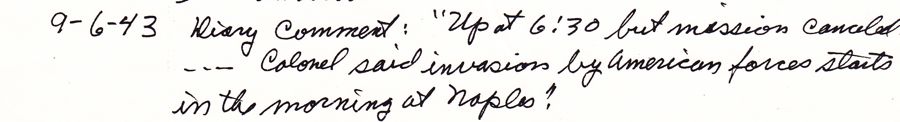 9-6-43 Diary Comment: "Up at 6:30 but mission canceled
---- Colonel said invasion by American forces starts
in the morning at Naples".